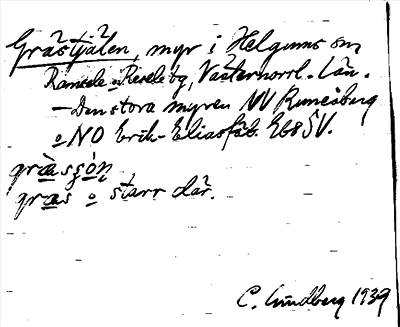 Grästjälen, myr i Helgums sn
Ramsele o Resele tg, Västernorrl. län.
— Den stora myren NV Runesberg
o NO Erik-Eliasfäb. Eb8 SV.
græs o starr där.
C. Lundberg 1939